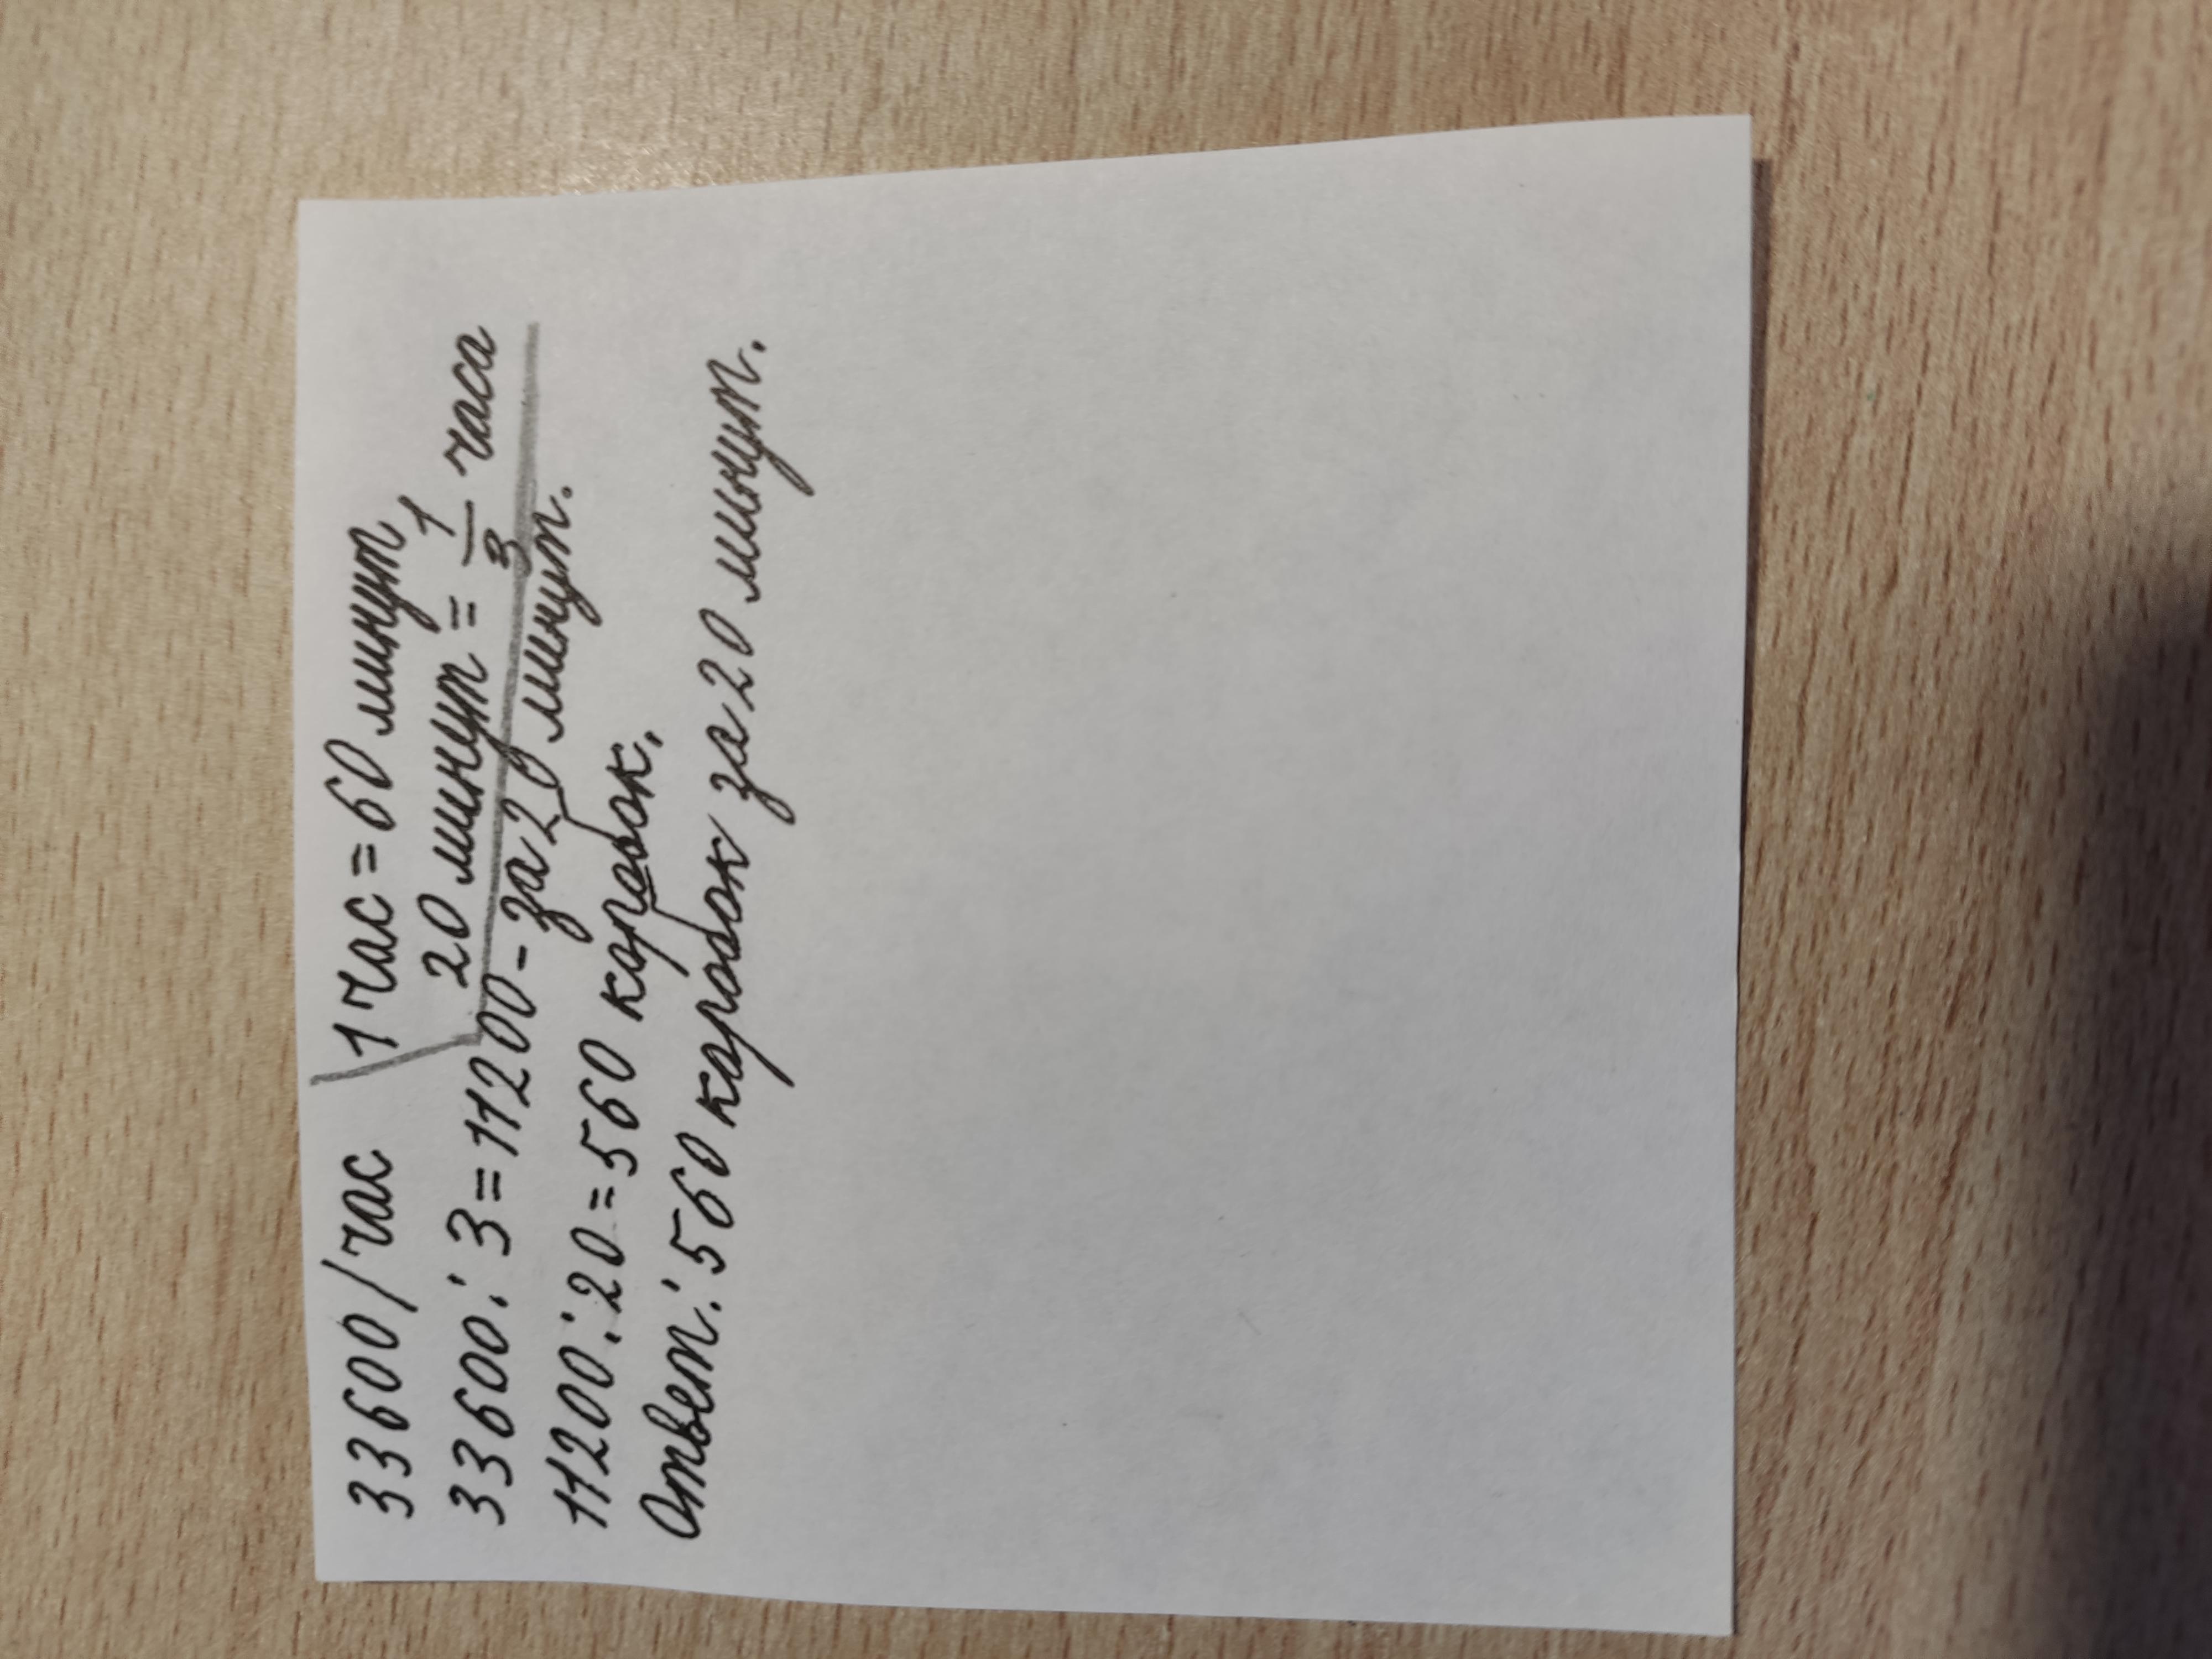 33600/час 1 час = 60 минут
20 минут = 1/3 часа
33600 : 3 = 11200 - за 20 минут.
11200 : 20 = 560 коробок.
Ответ: 560 коробок за 20 минут.